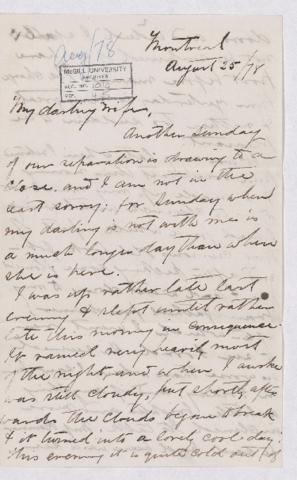 Aug/78
Montreal
August 25/78
McGILL UNIVERSITY
ARCHIVES
ACC. NO. 1010
REF.
My darling wife,
Another Sunday
of our separation is drawing to a
close, and I am not in the
least sorry: for Sunday when
my darling is not with me is
a much longer day than when
she is here.
I was up rather late last
evening & slept until rather
late this morning in consequence.
It rained very heavily most
of the night, and when I awoke
was still cloudy, but shortly after
wards the clouds began to break
& it turned into a lovely cool day;
this evening it is quite cold and